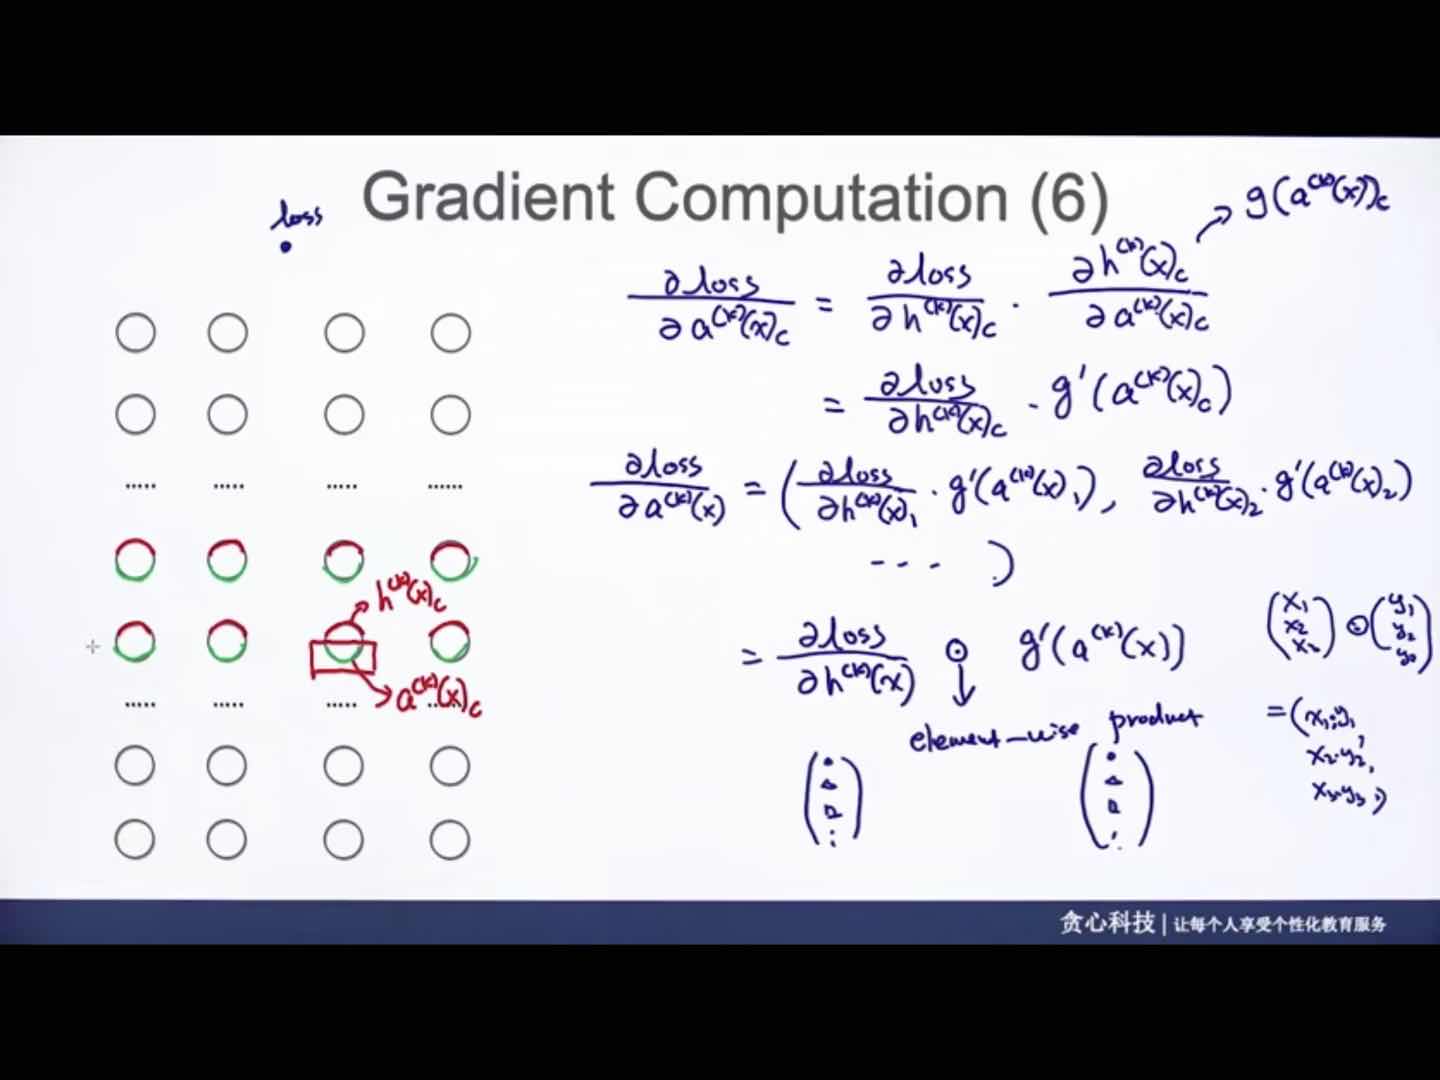 Gradient Computation (6)
loss
g(a^(k)(x))_c
∂loss/∂a^(k)(x)_c = ∂loss/∂h^(k)(x)_c · ∂h^(k)(x)_c/∂a^(k)(x)_c
= ∂loss/∂h^(k)(x)_c · g'(a^(k)(x)_c)
∂loss/∂a^(k)(x) = (∂loss/∂h^(k)(x)_1 · g'(a^(k)(x)_1), ∂loss/∂h^(k)(x)_2 · g'(a^(k)(x)_2)
... )
h^(k)(x)_c
a^(k)(x)_c
= ∂loss/∂h^(k)(x) ⊙ g'(a^(k)(x))
element-wise product
(x_1 x_2 x_3) ⊙ (y_1 y_2 y_3)
= (x_1·y_1,
x_2·y_2,
x_3·y_3)
贪心科技 | 让每个人享受个性化教育服务